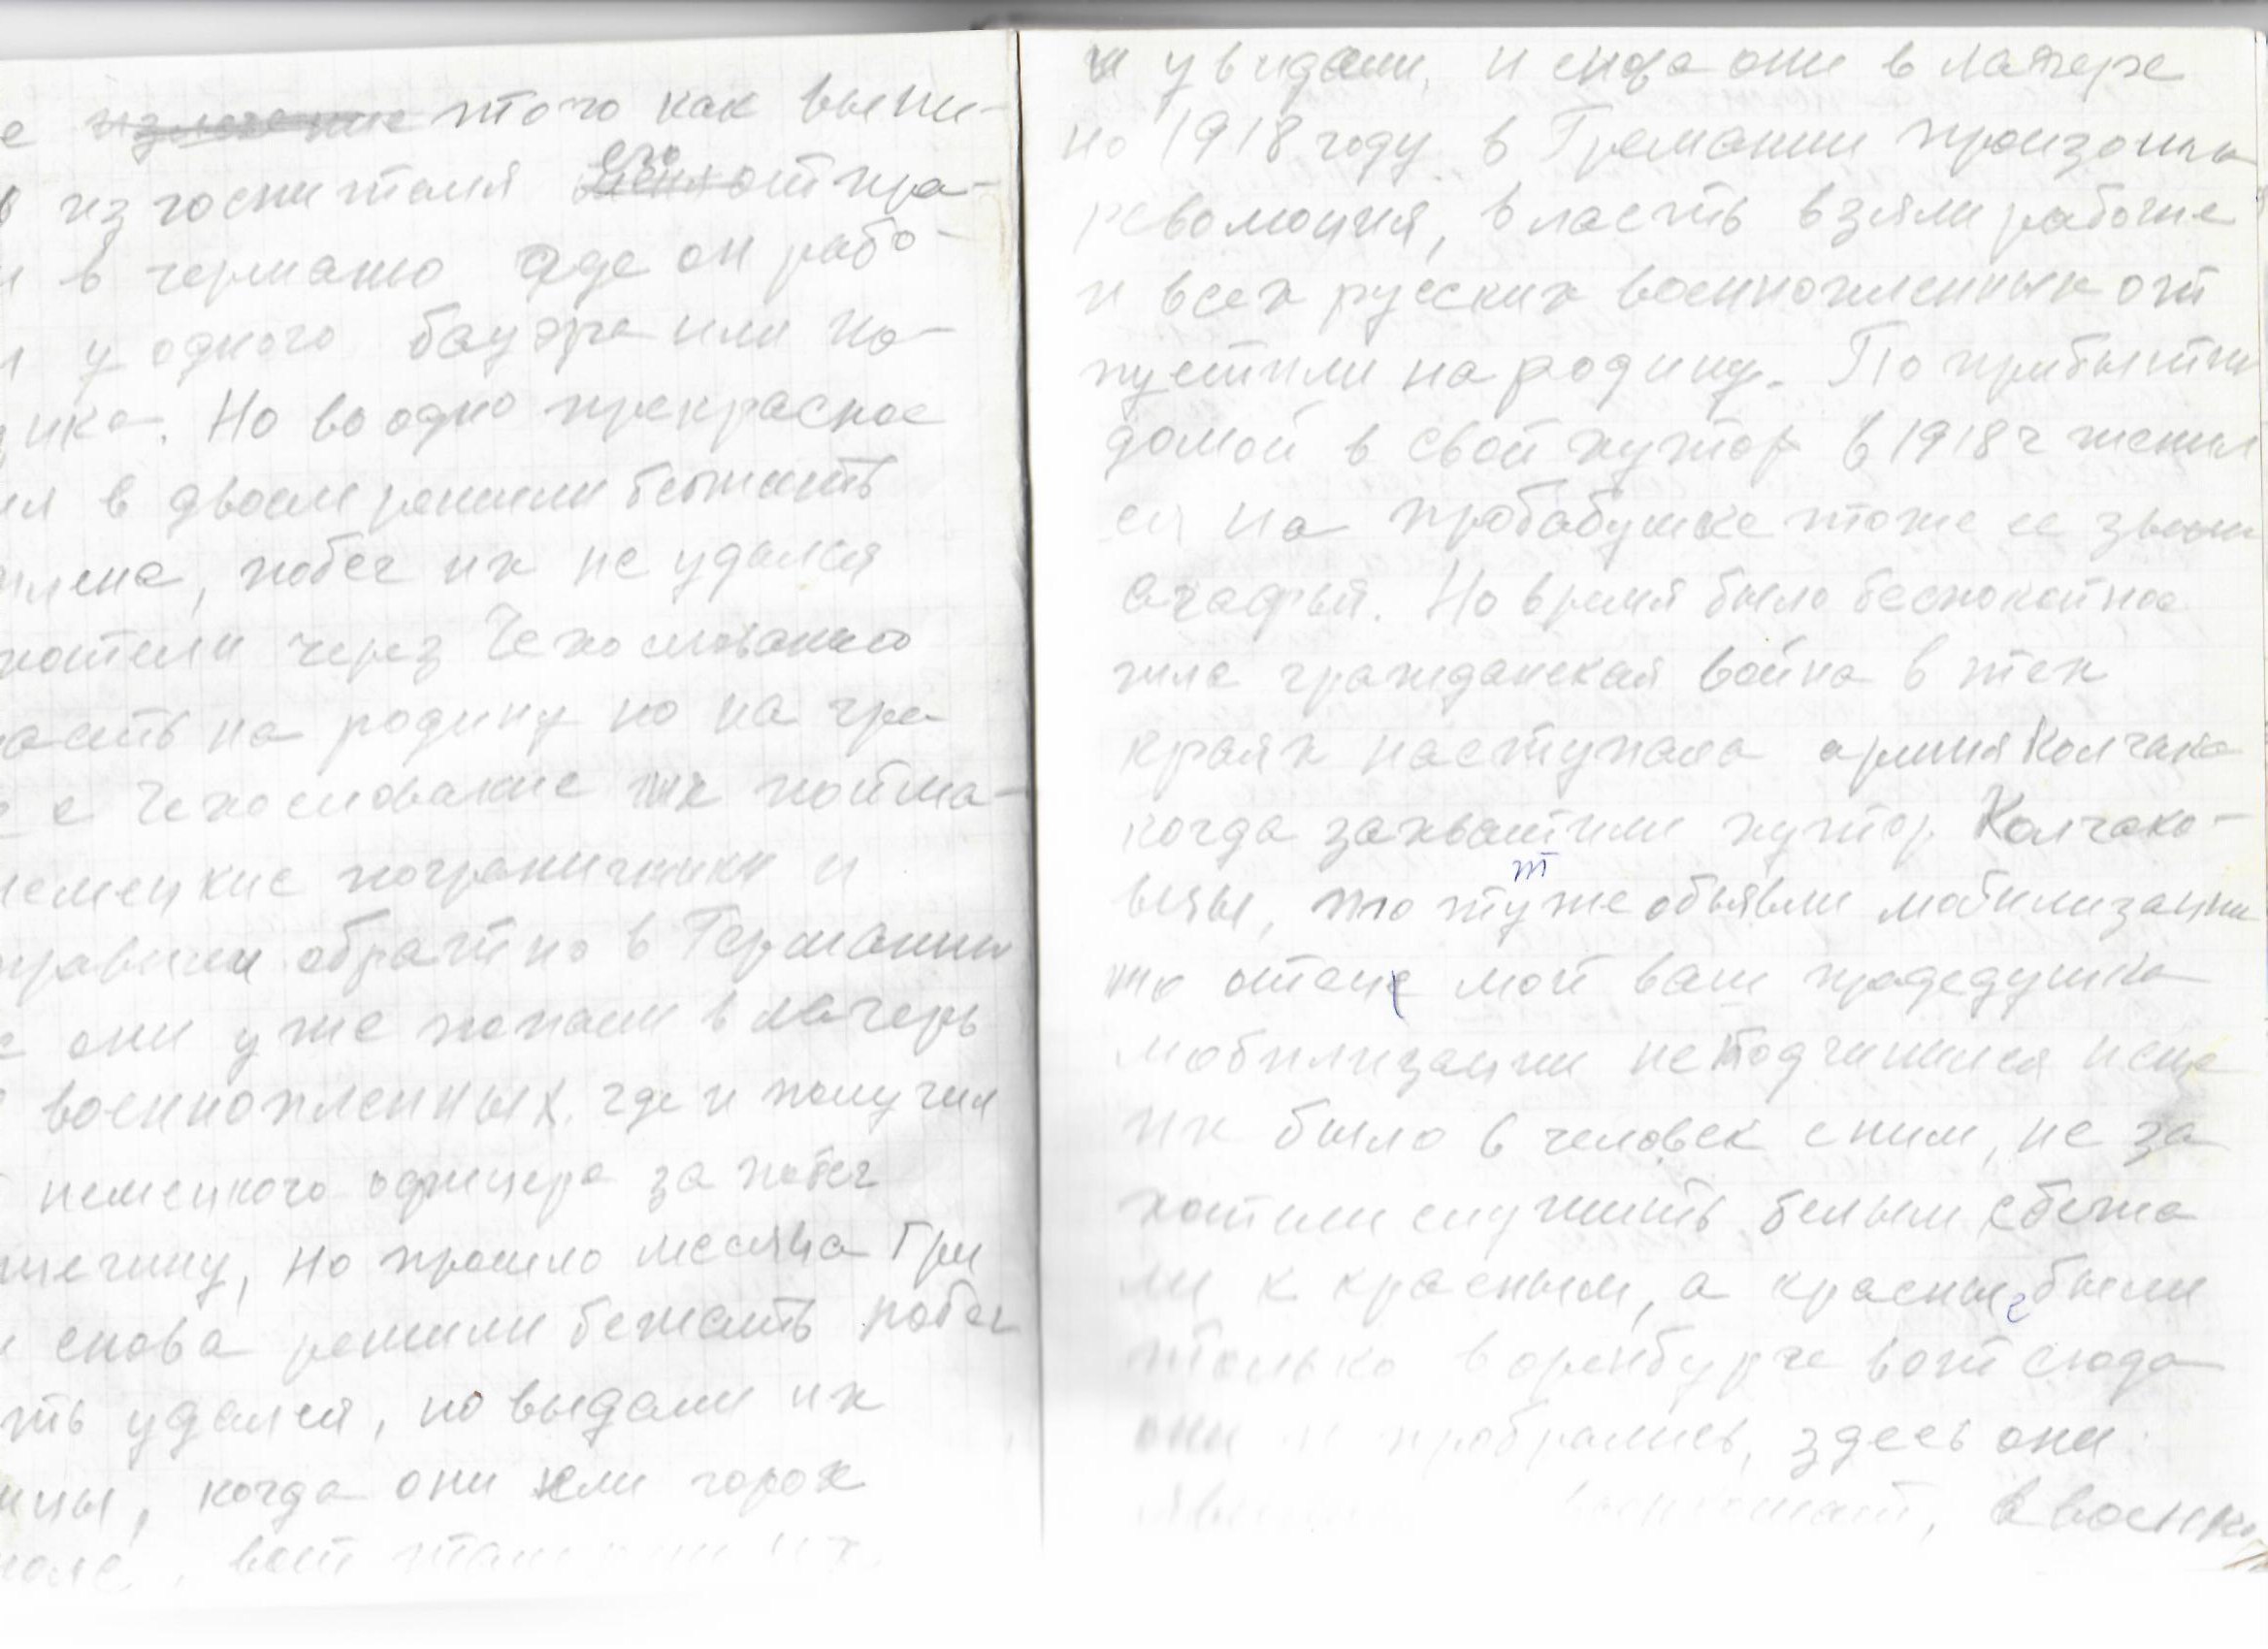 е ~~излечение~~ того как выпи-
в из госпителя его ~~меня~~ отпра-
и в германю где он рабо-
л у одного бауэра или по-
ика. Но во одно прекрасное
мя в двоем решили бежать
плена, побег их не удался
хотели через Чехословакию
пасть на родину но на гра-
е с Чехословакие их пойма-
немецкие пограничники и
правили обратно в Германию
е они уже попали в лагерь
военнопленных. где и получил
немецкого офицера за побег
щечину, Но прошло месяца Три
и снова решили бежать побег
ть удался, но выдали их
ицы, когда они ели горох
поле, вот там они их
и увидали, и снова они в лагере
но 1918 году в Гремании произошла
революция, власть взяли рабочие
и всех русских военнопленных от
пустили на родину. По прибытии
домой в свой хутор в 1918 г женил
ся на пробабушке тоже ее звали
Агафья. Но время было беспокойное
шла гражданская война в тех
краях наступала армия Колчака
когда захватили хутор Колчако-
вцы, то тут же обьявили мобилизации
то отец мой ваш прадедушка
мобилизации неподчинился и еще
их было 6 человек с ним, не за
хотили служить белым сбежа
ли к красным, а красные были
только в оренбурге вот сюда
они и пробрались, здесь они
в военко